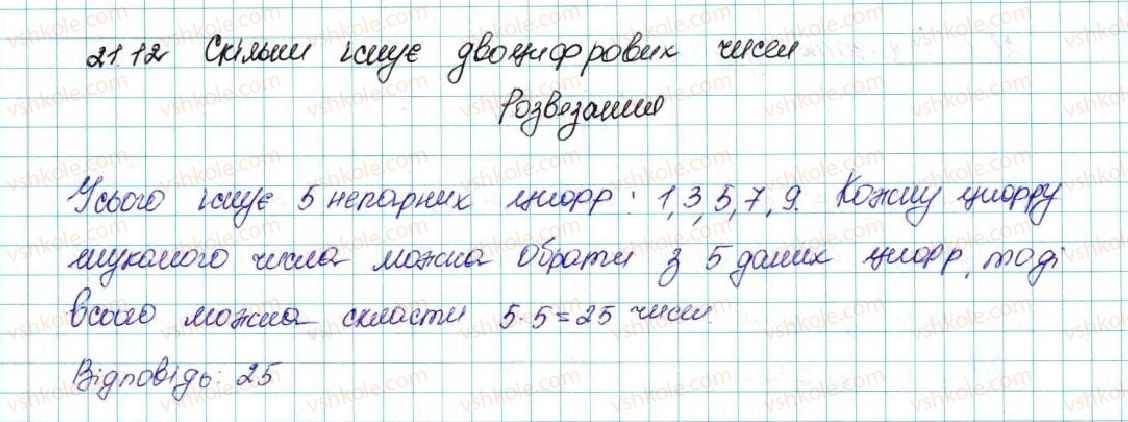 21.12 Скільки існує двоцифрових чисел
Розвязання
Усього існує 5 непарних цифр: 1,3,5,7,9. Кожну цифру
шуканого числа можна обрати з 5 даних цифр, тоді
всього можна скласти 5·5=25 чисел
Відповідь: 25